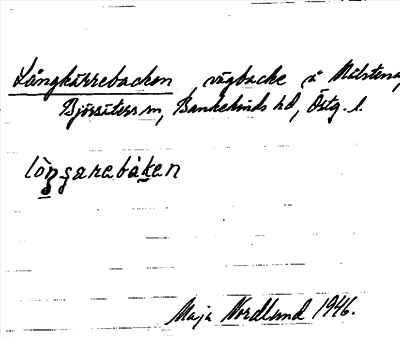 Långkärrebacken, vägbacke å Målstena,
Björsäters sn, Bankekinds hd, Östg. l.
lòŋgarebàken
Maja Nordlund 1946.